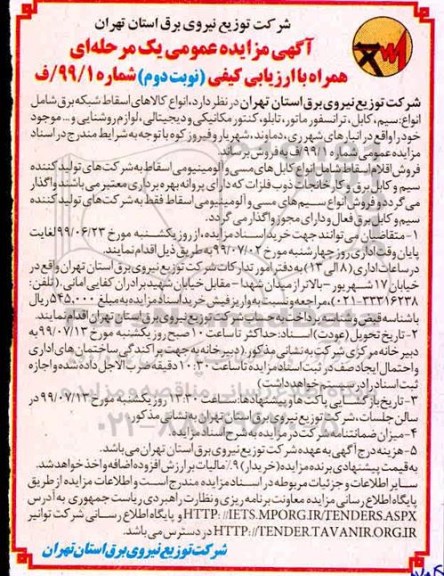 شرکت توزیع نیروی برق استان تهران
آگهی مزایده عمومی یک مرحله‌ای
همراه با ارزیابی کیفی (نوبت دوم) شماره ۹۹/۱/ف
شرکت توزیع نیروی برق استان تهران در نظر دارد، انواع کالاهای اسقاط شبکه برق شامل
انواع: سیم، کابل، ترانسفورماتور، تابلو، کنتور مکانیکی و دیجیتالی، لوازم روشنایی و... موجود
خود را واقع در انبارهای شهرری، دماوند، شهریار و فیروزکوه با توجه به شرایط مندرج در اسناد
مزایده عمومی شماره ۹۹/۱/ف به فروش برساند.
فروش اقلام اسقاط شامل انواع کابل‌های مسی و آلومینیومی اسقاط به شرکت‌های تولید کننده
سیم و کابل برق و کارخانجات ذوب فلزات که دارای پروانه بهره برداری معتبر می‌باشند واگذار
می‌گردد و فروش انواع سیم‌های مسی و آلومینیومی اسقاط فقط به شرکت‌های تولید کننده
سیم و کابل برق فعال و دارای مجوز واگذار می‌گردد.
۱- متقاضیان می‌توانند جهت خرید اسناد مزایده، از روز یکشنبه مورخ ۹۹/۰۶/۲۳ لغایت
پایان وقت اداری روز چهارشنبه مورخ ۹۹/۰۷/۰۲ به طریق ذیل اقدام نمایند.
در ساعات اداری (۸ الی ۱۳) به دفتر امور تدارکات شرکت توزیع نیروی برق استان تهران واقع در
خیابان ۱۷ شهریور - بالاتر از میدان شهدا - مقابل خیابان شهید برادران کفایی امانی. (تلفن:
۳۳۳۱۶۲۳۸-۰۲۱)، مراجعه و نسبت به واریز فیش خرید اسناد مزایده به مبلغ ۵۴۵,۰۰۰ ریال
با شناسه قبض و شناسه پرداخت به حساب شرکت توزیع نیروی برق استان تهران اقدام نمایند.
۲- تاریخ تحویل (عودت) اسناد: حداکثر تا ساعت ۱۰ صبح روز یکشنبه مورخ ۹۹/۰۷/۱۳ به
دبیرخانه مرکزی شرکت به نشانی مذکور (دبیرخانه به جهت پراکندگی ساختمان‌های اداری
و احتمال ایجاد صف در ثبت اسناد مزایده تا ساعت ۱۰:۳۰ دقیقه ضرب الاجل داده شده و اجازه
ثبت اسناد را در سیستم خواهد داشت)
۳- تاریخ بازگشایی پاکت‌ها و پیشنهادها: ساعت ۱۳:۳۰ روز یکشنبه مورخ ۹۹/۰۷/۱۳ در
سالن جلسات، شرکت توزیع نیروی برق استان تهران به نشانی مذکور.
۴- میزان ضمانتنامه شرکت در مزایده به شرح اسناد مزایده.
۵- هزینه درج آگهی به عهده شرکت توزیع نیروی برق استان تهران می‌باشد.
به قیمت پیشنهادی برنده مزایده (خریدار) ۹٪ مالیات بر ارزش افزوده اضافه و اخذ خواهد شد.
سایر اطلاعات و جزئیات مربوطه در اسناد مزایده مندرج است و اطلاعات مزایده از طریق
پایگاه اطلاع رسانی مزایده معاونت برنامه ریزی و نظارت راهبردی ریاست جمهوری به آدرس
HTTP://IETS.MPORG.IR/TENDERS.ASPX و پایگاه اطلاع رسانی شرکت توانیر
HTTP://TENDER.TAVANIR.ORG.IR در دسترس می‌باشد.
شرکت توزیع نیروی برق استان تهران